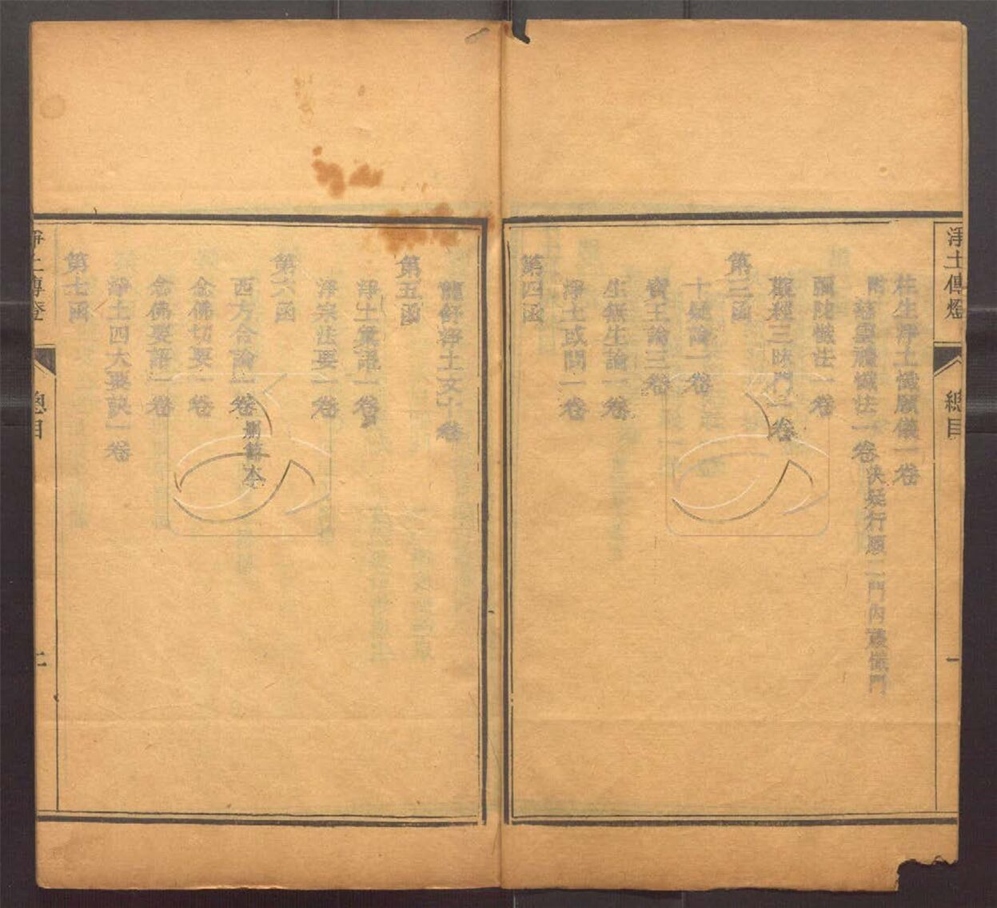 淨土傳燈
總目
一
往生淨土懺願儀一卷
附 慈雲禮懺法一卷 決疑行願二門內禮懺門
彌陀懺法一卷
觀經三昧門一卷
第三函
十疑論一卷
寶王論三卷
生無生論一卷
淨土或問一卷
第四函
龍舒淨土文十卷
第五函
淨土彙語一卷
淨宗法要一卷
第六函
西方合論一卷 刪節本
念佛切要一卷
念佛要語一卷
淨土四大要訣一卷
第七函
淨土傳燈
總目
二